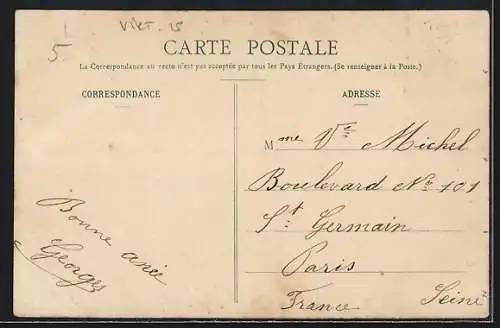 5
Vkt. 15
CARTE POSTALE
La Correspondance au recto n'est pas acceptée par tous les Pays Étrangers. (Se renseigner à la Poste.)
CORRESPONDANCE
Bonne anée
Georges
ADRESSE
Mme Vve Michel
Boulevard No 101
St Germain
Paris
France Seine